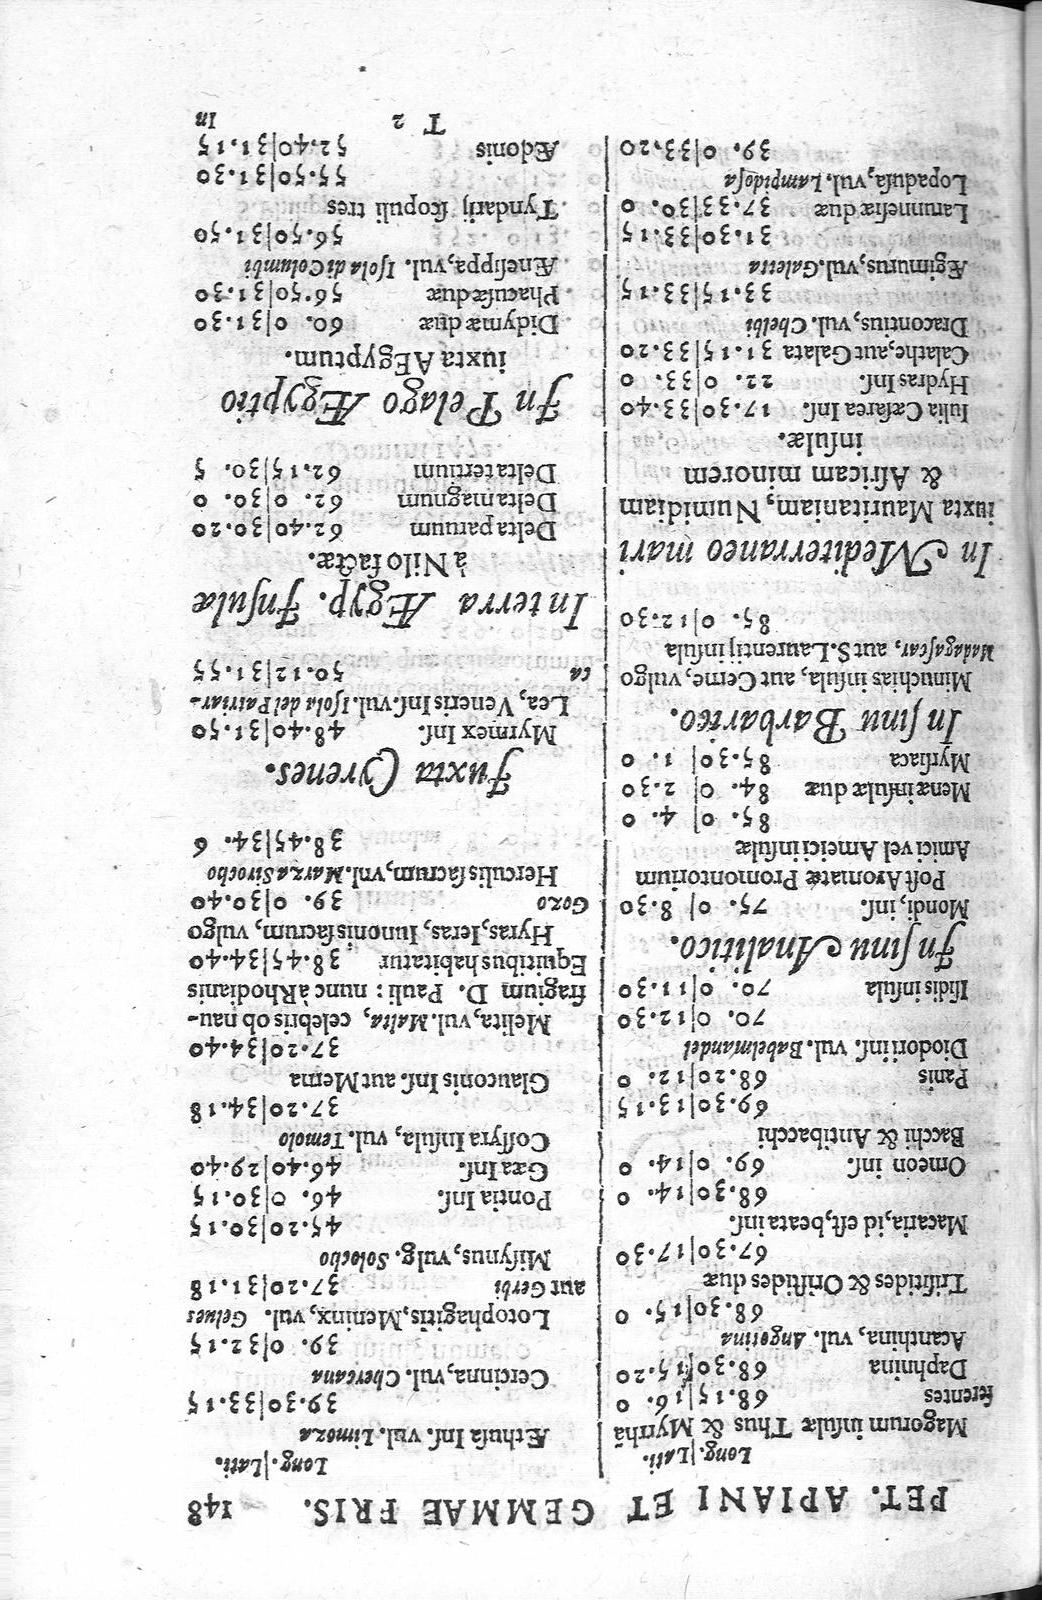 PET. APIANI ET GEMMAE FRIS. 148
Long.|Lati.
Magorum insulæ Thus & Myrrhã
ferentes 68.15|16. 0
Daphnina 68.30|15.20
Acanthina, vul. Angotina
68.30|15. 0
Trisitides & Orisitides duæ
67.30|17.30
Macaria, id est, beata inſ.
68.30|14. 0
Omeon inſ. 69. 0|14. 0
Bacchi & Antibacchi
69.30|13.15
Panis 68.20|12. 0
Diodori inſ. vul. Babelmandel
70. 0|12.30
Isidis insula 70. 0|11.30
In sinu Analitico.
Mondi, inſ. 75. 0| 8.30
Post Aromatæ Promontorium
Amici vel Ameici insulæ
85. 0| 4. 0
Menæ insulæ duæ 84. 0| 2.30
Myrsiaca 85.30| 1. 0
In sinu Barbarico.
Minuchias insula, aut Cerne, vulgo
Madagascar, aut S. Laurentij insula
85. 0|12.30
In Mediterraneo mari
iuxta Mauritaniam, Numidiam
& Africam minorem
insulæ.
Iulia Cæsarea Inſ. 17.30|33.40
Hydras Inſ. 22. 0|33. 0
Calathe, aut Galata 31.15|33.20
Dracontius, vul. Chelbi
33.15|33.15
Ægimurus, vul. Galetta
31.30|33.15
Larunnesiæ duæ 37.33|30. 0
Lopadusa, vul. Lampidosa
39. 0|33.20
Long.|Lati.
Æthusa Inſ. vul. Limoza
39.30|33.15
Cercinna, vul. Chercana
39. 0|32.15
Lotophagitis, Meninx, vul. Gelues
aut Gerbi 37.20|31.18
Misynus, vulg. Solocho
45.20|30.15
Pontia Inſ. 46. 0|30.15
Gæa Inſ. 46.40|29.40
Cossyra Insula, vul. Temolo
37.20|34.18
Glauconis Inſ. aut Mema
37.20|34.40
Melita, vul. Malta, celebris ob nau-
fragium D. Pauli: nunc à Rhodianis
Equitibus habitatur 38.45|34.40
Hyras, Ieras, Iunonis sacrum, vulgo
Gozo 39. 0|30.40
Herculis sacrum, vul. Marza Sirocho
38.45|34. 6
Juxta Cyrenes.
Myrmex Inſ. 48.40|31.50
Lea, Veneris Inſ. vul. Isola del Patriar-
ca 50.12|31.55
In terra Ægyp. Insulæ
à Nilo factæ.
Delta paruum 62.40|30.20
Delta magnum 62. 0|30. 0
Delta tertium 62.15|30. 5
In Pelago Ægyptio
iuxta AEgyptum.
Didymæ duæ 60. 0|31.30
Phacusæ duæ 56.50|31.30
Ænesippa, vul. Isola di Columbi
56.50|31.50
Tyndarij scopuli tres
55.50|31.30
Ædonis 52.40|31.15
T 2 In